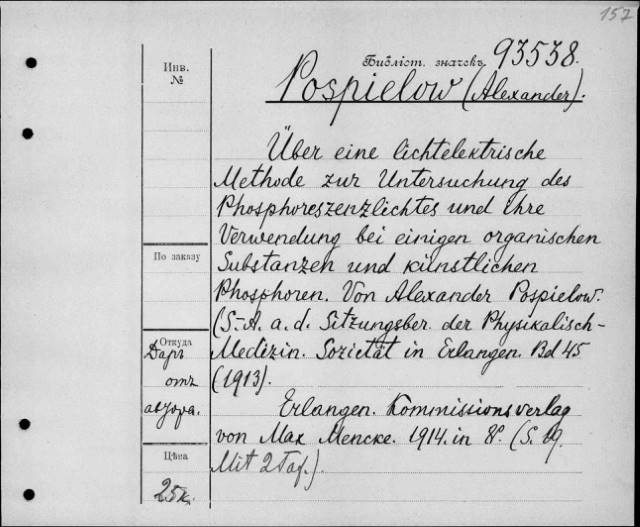 157
Библіот. значекъ 93538.
Инв.
№
Pospielow (Alexander).
Über eine lichtelektrische
Methode zur Untersuchung des
Phosphoreszenzlichtes und ihre
Verwendung bei einigen organischen
По заказу
Substanzen und künstlichen
Phosphoren. Von Alexander Pospielow.
(S.-A. a. d. Sitzungsber. der Physikalisch-
Откуда
Даръ
отъ
автора.
Medizin. Sozietät in Erlangen. Bd 45
(1913).
Erlangen. Kommissionsverlag
von Max Mencke. 1914. in 8º. (S. 19.
Цѣна
25к.
Mit 2 Taf.).